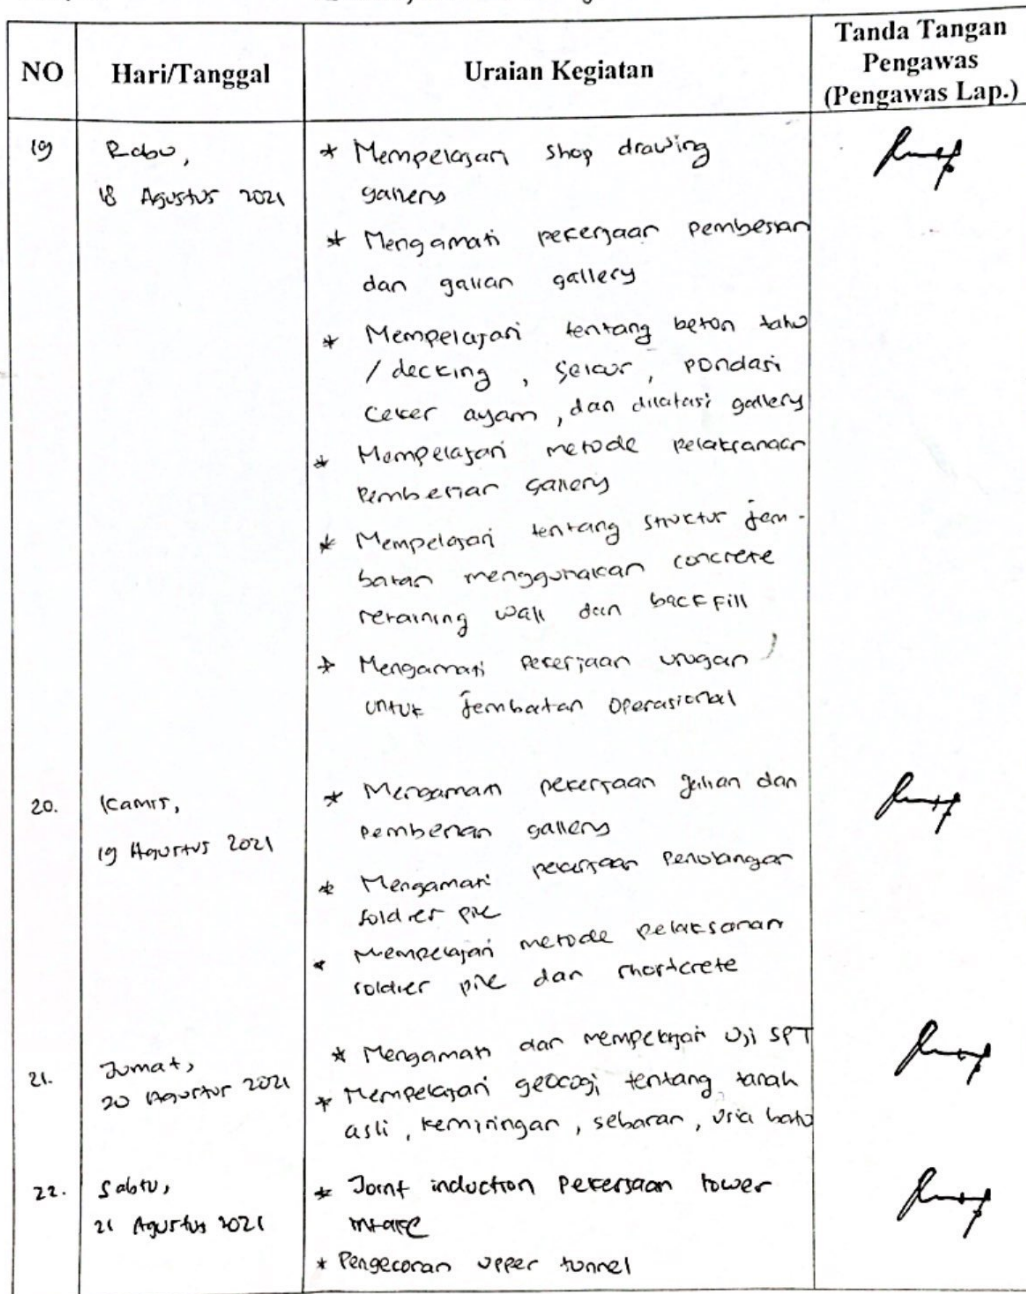 NO
Hari/Tanggal
Uraian Kegiatan
Tanda Tangan
Pengawas
(Pengawas Lap.)
19
Rabu,
18 Agustus 2021
* Mempelajari shop drawing
gallery
* Mengamati pekerjaan pembesian
dan galian gallery
* Mempelajari tentang beton tahu
/ decking , selcur , pondasi
ceker ayam , dan dilatasi gallery
* Mempelajari metode pelaksanaan
pembesian gallery
* Mempelajari tentang struktur jem-
batan menggunakan concrete
retaining wall dan backfill
* Mengamati pekerjaan urugan
untuk jembatan operasional
20.
Kamis,
19 Agustus 2021
* Mengamati pekerjaan galian dan
pembesian gallery
* Mengamati pekerjaan penulangan
soldier pile
* Mempelajari metode pelaksanan
soldier pile dan shortcrete
21.
Jumat,
20 Agustus 2021
* Mengamati dan mempelajari uji SPT
* Mempelajari geologi tentang tanah
asli , kemiringan , sebaran , usia batu
22.
Sabtu,
21 Agustus 2021
* Joint induction pekerjaan tower
intake
* Pengecoran upper tunnel